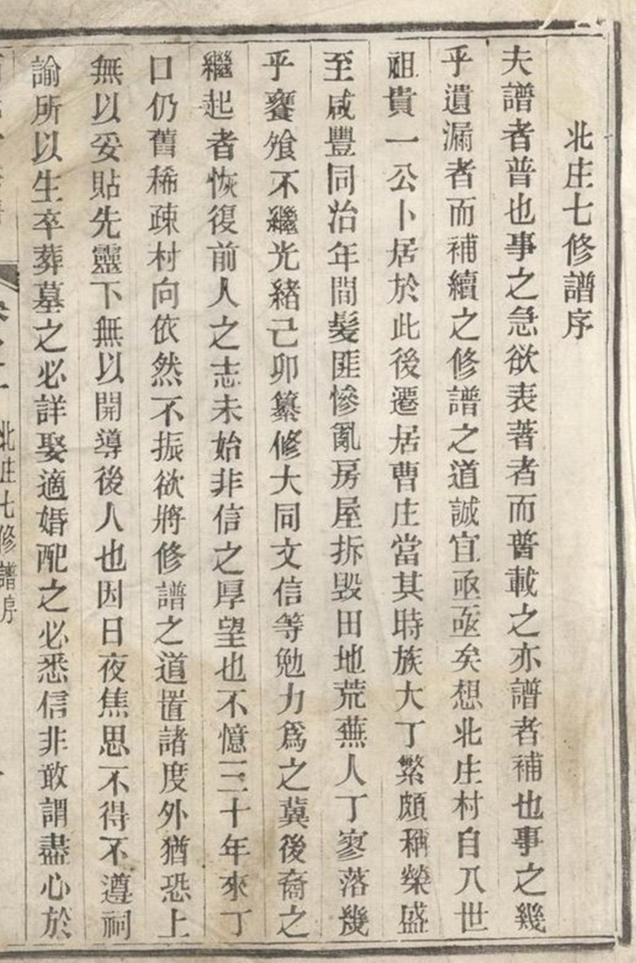 北庄七修譜序
夫譜者普也事之急欲表著者而普載之亦譜者補也事之幾
乎遺漏者而補續之修譜之道誠宜亟亟矣想北庄村自八世
祖貴一公卜居於此後遷居曹庄當其時族大丁繁頗稱榮盛
至咸豐同治年間髮匪慘亂房屋拆毀田地荒蕪人丁寥落幾
乎饔飧不繼光緒己卯纂修大同文信等勉力爲之冀後裔之
繼起者恢復前人之志未始非信之厚望也不憶三十年來丁
口仍舊稀疎村向依然不振欲將修譜之道置諸度外猶恐上
無以妥貼先靈下無以開導後人也因日夜焦思不得不遵祠
諭所以生卒葬墓之必詳娶適婚配之必悉信非敢謂盡心於
北庄七修譜序